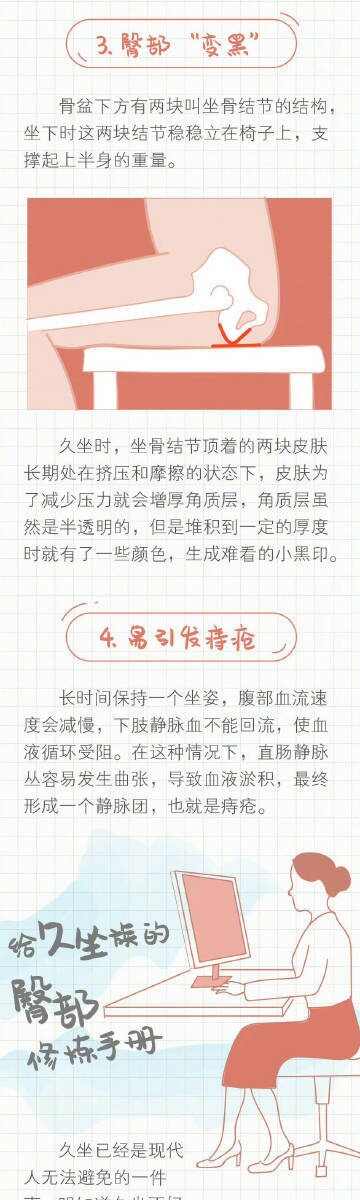 3.臀部“变黑”
骨盆下方有两块叫坐骨结节的结构，
坐下时这两块结节稳稳立在椅子上，支
撑起上半身的重量。
久坐时，坐骨结节顶着的两块皮肤
长期处在挤压和摩擦的状态下，皮肤为
了减少压力就会增厚角质层，角质层虽
然是半透明的，但是堆积到一定的厚度
时就有了一些颜色，生成难看的小黑印。
4.易引发痔疮
长时间保持一个坐姿，腹部血流速
度会减慢，下肢静脉血不能回流，使血
液循环受阻。在这种情况下，直肠静脉
丛容易发生曲张，导致血液淤积，最终
形成一个静脉团，也就是痔疮。
给久坐族的
臀部
修炼手册
久坐已经是现代
人无法避免的一件